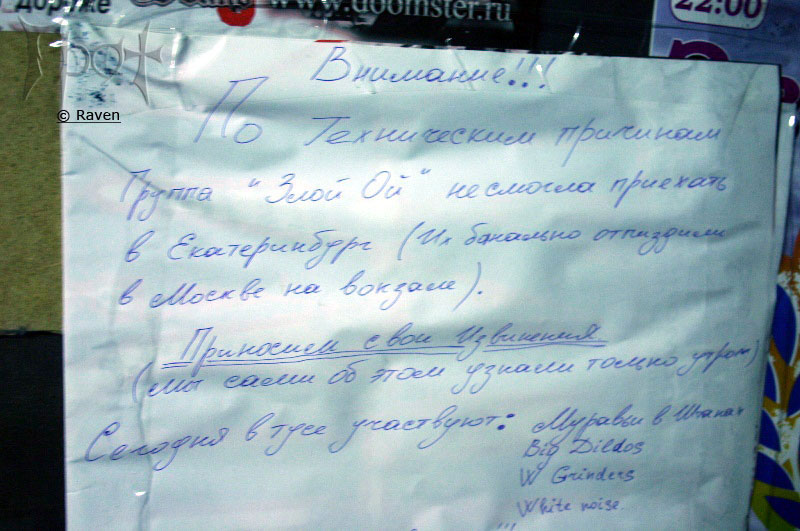 www.doomster.ru
22:00
© Raven
Внимание!!!
По Техническим причинам
Группа "Злой Ой" несмогла приехать
в Екатеринбург (Их банально отпиздили
в Москве на вокзале).
Приносим свои Извинения
(мы сами об этом узнали только утром)
Сегодня в тусе участвуют: Муравьи в Штанах
Big Dildos
W Grinders
White noise